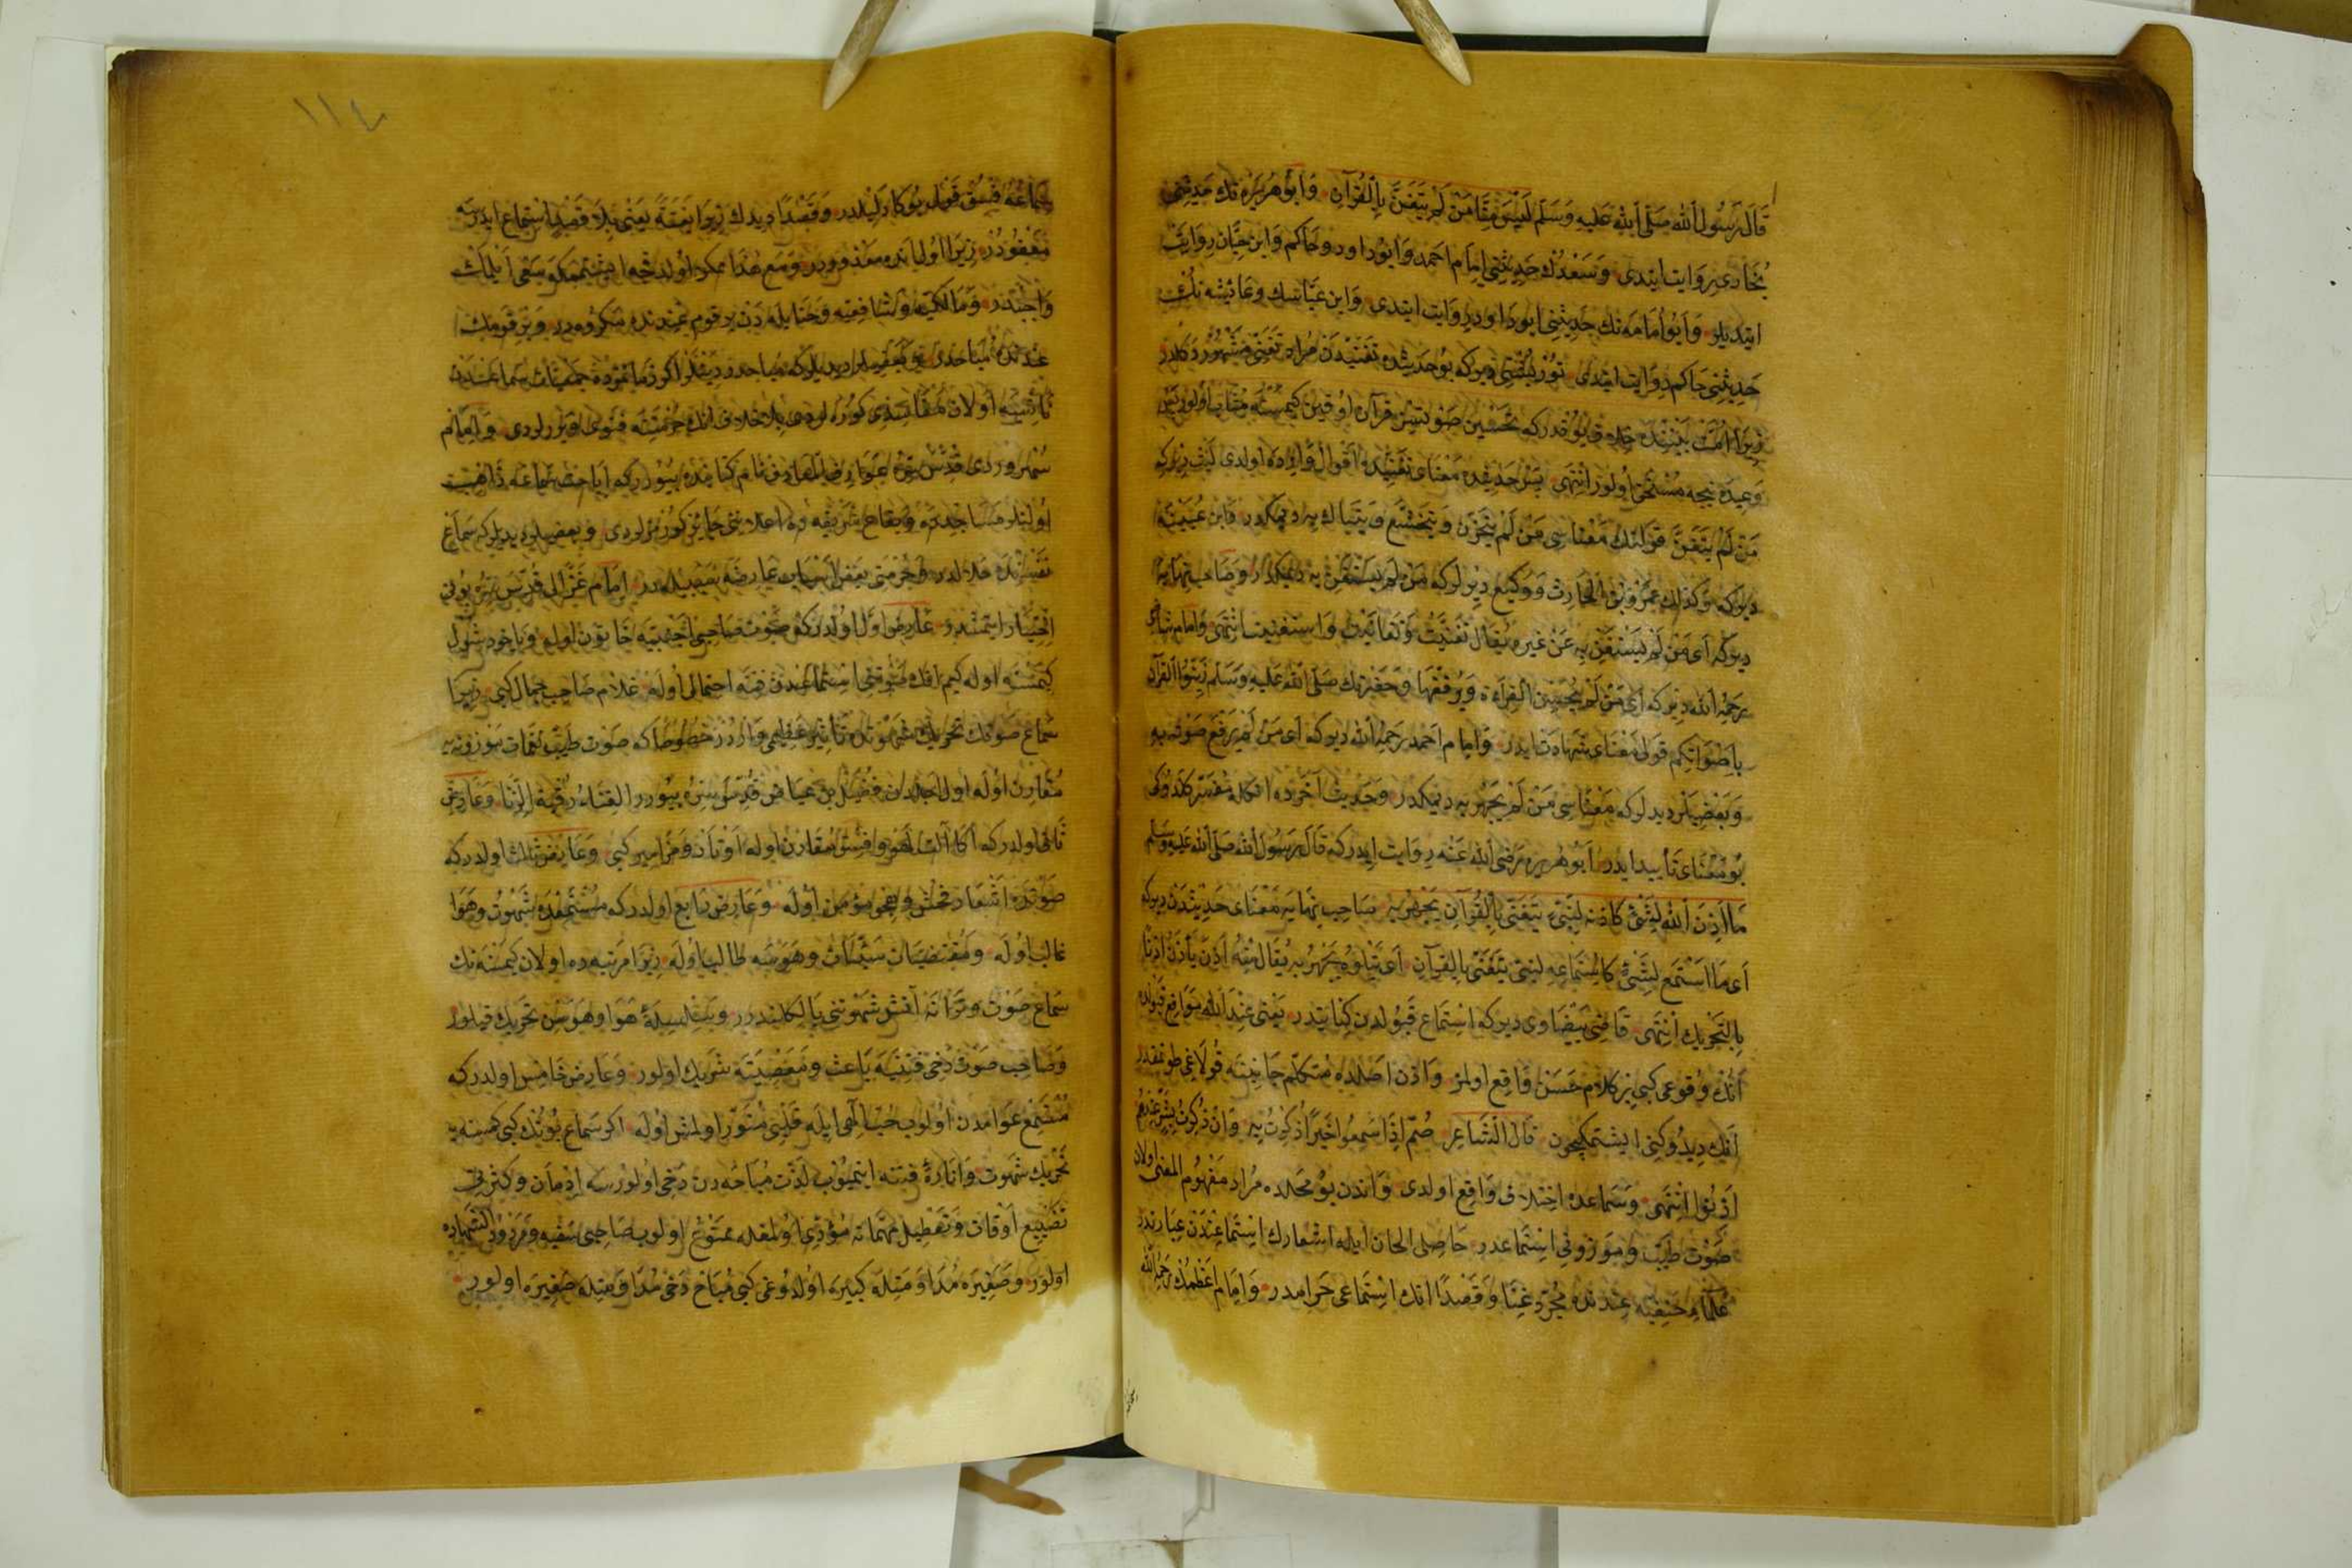 قَالَ رَسُولُ اللهِ صَلَّى اللهُ عَلَيهِ وَسَلَّم لَيْسَ مِنَّا مَنْ لَمْ يَتَغَنَّ بِالْقُرْآنِ وَابُو هُرَيرَه نك حَدِيثِنى
بُخَارى رِوَايت ايتدى وَسَعْدُك حَدِيثِنى اِمَام اَحمد وَابُو داود وحَاكم وَابن حِبَّان رِوَايَت
ايتديلر وَابُو اُمَامَه نك حَدِيثِنى ابو دَاود رِوَايت ايتدى وَابن عَبَّاسك وعَائِشه نك
حَدِيثِنى حَاكم رِوَايت ايتدى تُورْبُشْتِى ديركه بُو حَديثده تَغَنِّيدَن مُراد تغَنّى مَشْهُور دكلدر
زِيرَا اُمَّت بَيْنِنده خلاف يُوقدركه تَحْسِين صَوتيله قرآن اوقيَن كِمسَنه مُثَاب اُولور پس
وَعِيدَه نيجه مُسْتَحِق اُولور انتهى پس حَديثده مَعْنَاى تغَنِّيده اَقوَال وَارِده اولدى لَيْث ديركه
مَنْ لَمْ يَتَغَنَّ قَولِنك مَعْنَاسى مَنْ لَمْ يَتَحَزَّن وَيَتَخَشَّع وَيَتَبَاكَ بِه ديمكدر وَابن عُيَيْنَه
ديركه وَكذلك عمرو بن الحَارِث وَوَكِيع ديرلركه مَنْ لَمْ يَسْتَغْنِ بِه ديمكدر وصَاحِب نِهَايَه
ديركه اَى مَنْ لَمْ يَسْتَغْنِ بِه عَنْ غيره يُقَال تَغَنَّيْت وَتَغَانَيْت وَاستغنيت انتهى وَامام شافعى
رَحِمَهُ الله ديركه اَى مَنْ لَمْ يُحْسِن القِرَاءَة وَيُرَقِّقْهَا وَحَضْرتك صَلَّى الله عَلَيهِ وَسَلَّم زَيِّنُوا القُرآنَ
بِاَصْوَاتِكم قولى مَعْنَايه شَهَادَت ايدر وَامَام اَحمد رَحِمَهُ الله ديركه اَى مَنْ لَمْ يَرْفَع صَوتَه بِه
وَبَعْضِيلر ديديلركه مَعْنَاسى مَنْ لَمْ يَجْهَر بِه ديمكدر وحَديث آخَرده انكله مُفَسَّر كلدوكى
بُو مَعْنَايى تَأييد ايدر اَبُو هريره رَضِى الله عَنه رِوَايت ايدركه قَالَ رَسُول الله صَلّى الله عَليهِ وسَلم
مَا اَذِنَ الله لِشَىْءٍ كَاَذَنِه لِنَبِىٍّ يَتَغَنّى بِالقُرْآنِ يَجْهَرُ بِه صَاحِب نِهَايَه مَعْنَاى حَديثدن ديركه
اَى مَا اسْتَمَع لِشَىْءٍ كَاسْتِمَاعِه لِنَبِىّ يَتَغَنّى بِالقرآن اَى يَتْلُوهُ يَجْهَرُ بِه يُقَال مِنْهُ اَذِنَ يَأذَنُ اَذَنًا
بِالتَّحْرِيك انتهى قَاضِى بَيْضَاوى ديركه اسْتِمَاع قَبُولدن كِنَايتدر يَعْنى عِنْدَ الله مَوَاقِع قبولده
اَنُك وُقوعى كبى بِر كلام حَسَن وَاقِع اولمز وَاَذَن اَصْلده مُتكلِّم جَانِبنه قُولاغى طوتمقدر
اَنك ديدُوكِنى ايشتمكيچون قَال الشَّاعِر صُمٌّ اِذَا سَمِعُوا خَيْرًا ذُكِرْتُ بِه وَاِنْ ذُكِرْتُ بِشَرٍّ عِنْدَهُمْ
اَذِنُوا انْتَهى وَسَمَاعده اخْتِلاف وَاقِع اولدى وَاندن بُو مَحَلده مُراد مَفهُوم المعنى اولان
صَوْت طيّب وَمَوزونى اسْتِمَاعدر حَاصِلى الحان ايله اشعارك اسْتِمَاعِندن عِبَارتدر
عُلَمَاء حَنَفِيَّه عِنْدنده مُجَرَّد غِنَا وَقَصْدًا انك اسْتِمَاعى حَرامدر وَامَام اَعْظَمُك رَحِمَهُ الله
١١٤
سَمَاعَه فِسْق قَولى بُوكا دَلِيلدر وَقَصْدًا ديدك زيرَا بَغْتَةً يَعْنى بِلا قَصْد استِمَاع ايدرسه
مَعْفُودُر زيرَا اولبابده مَعْذوردر وَمَع هٰذَا ممكن اولدقجه ايشتمَمكه سَعى اَيْلمَك
وَاجِبْدر وَمَالكيّه وَشافِعِيّه وَحَنَابِلَه دَن بِر قوم عِنْدنده مَكروهدر وَبِر قَومك
عندنده مُبَاحدر
سُهروردى قُدِّسَ سِرُّه عَوَارِف المعَارِف نام كتَابنده بيُوررلركه
تَفْسِنده حَلالدر وَحُرمتى بَعض اَسْبَاب عَارِضَه سَبَبيله در اِمَام غَزَالى قُدِّسَ سِرُّه بُونى
اخْتِيَار ايتمشدر عَارِض اَوَّل اولدركه صَوْت صَاحِبى اَجْنَبِيَّه خَاتون اوله وَيَاخود شول
كِمسنه اوله كيم انك صَوتنى اسْتِمَاعدن فِتنه احتمالى اُوله غلام صَاحِب جمَال كبى زيرَا
سَمَاع صَوتك تحريك شَهوتده تَأثير عَظِيمى وَاردُر خُصُوصًا كه صَوْت طَيِّب نَغَمَات مَوزونه يه
مُقَارِن اوله اول اجلدن فُضَيْل بن عِيَاض قُدِّسَ سِرُّه بيُورر الغِنَاءُ رُقْيَة الزِّنا وَعَارِض
ثَانى اولدركه اَكَا آلت لهو وفِسْق مُقَارِن اوله اَوتَار وَمَزَامير كبى وَعَارِض ثَالث اولدركه
صَوْتده اَشْعَار فحش وهجو مؤمن اُوله وَعَارِض رَابِع اولدركه مُسْتَمِعده شَهْوت وهَوَا
غالب اُولَه وَمُقْتَضِيَات سَيِّئَات وهَوَسَه طَالب اُوله زيرَا مَرتبه ده اولان كِمسَنَه نك
سَمَاع صَوْت وَتَرَانَه آتش شَهْوتنى يَالكلندرر وَسِلسِلَهٔ هَوَا وهَوَسِن تحريك قيلور
وَصَاحِب صَوْت دَخى فِتنَيه بَاعِث وَمَعْصِيَتَه شَريك اولور وَعَارض خَامس اولدركه
مُسْتَمِع عَوَامدن اُولوب حُبّ الٰهى ايله قَلْبى مُنَوَّر اولمَش اُوله اكر سَمَاع بُونُك كبى كمسنه يه
تَحْريك شَهْوت وَاِثَارَهٔ فِتنه ايتميُوب لَذّت مُبَاحَه دن دَخى اُولورسه اِدْمَان وكثرتى
تَضْيِيع اَوْقات وَتَعْطِيل مُهمَّاته مُؤَدِّى اُولمغله مَمْنُوع اولوب صَاحِبى سَفيه وَمَردُود الشّهَاده
اولور وصَغِيرَه مُدَاوَمَتله كبيرَه اُولدُوغى كبى مُبَاح دَخى مُدَاوَمتله صَغِيرَه اولور